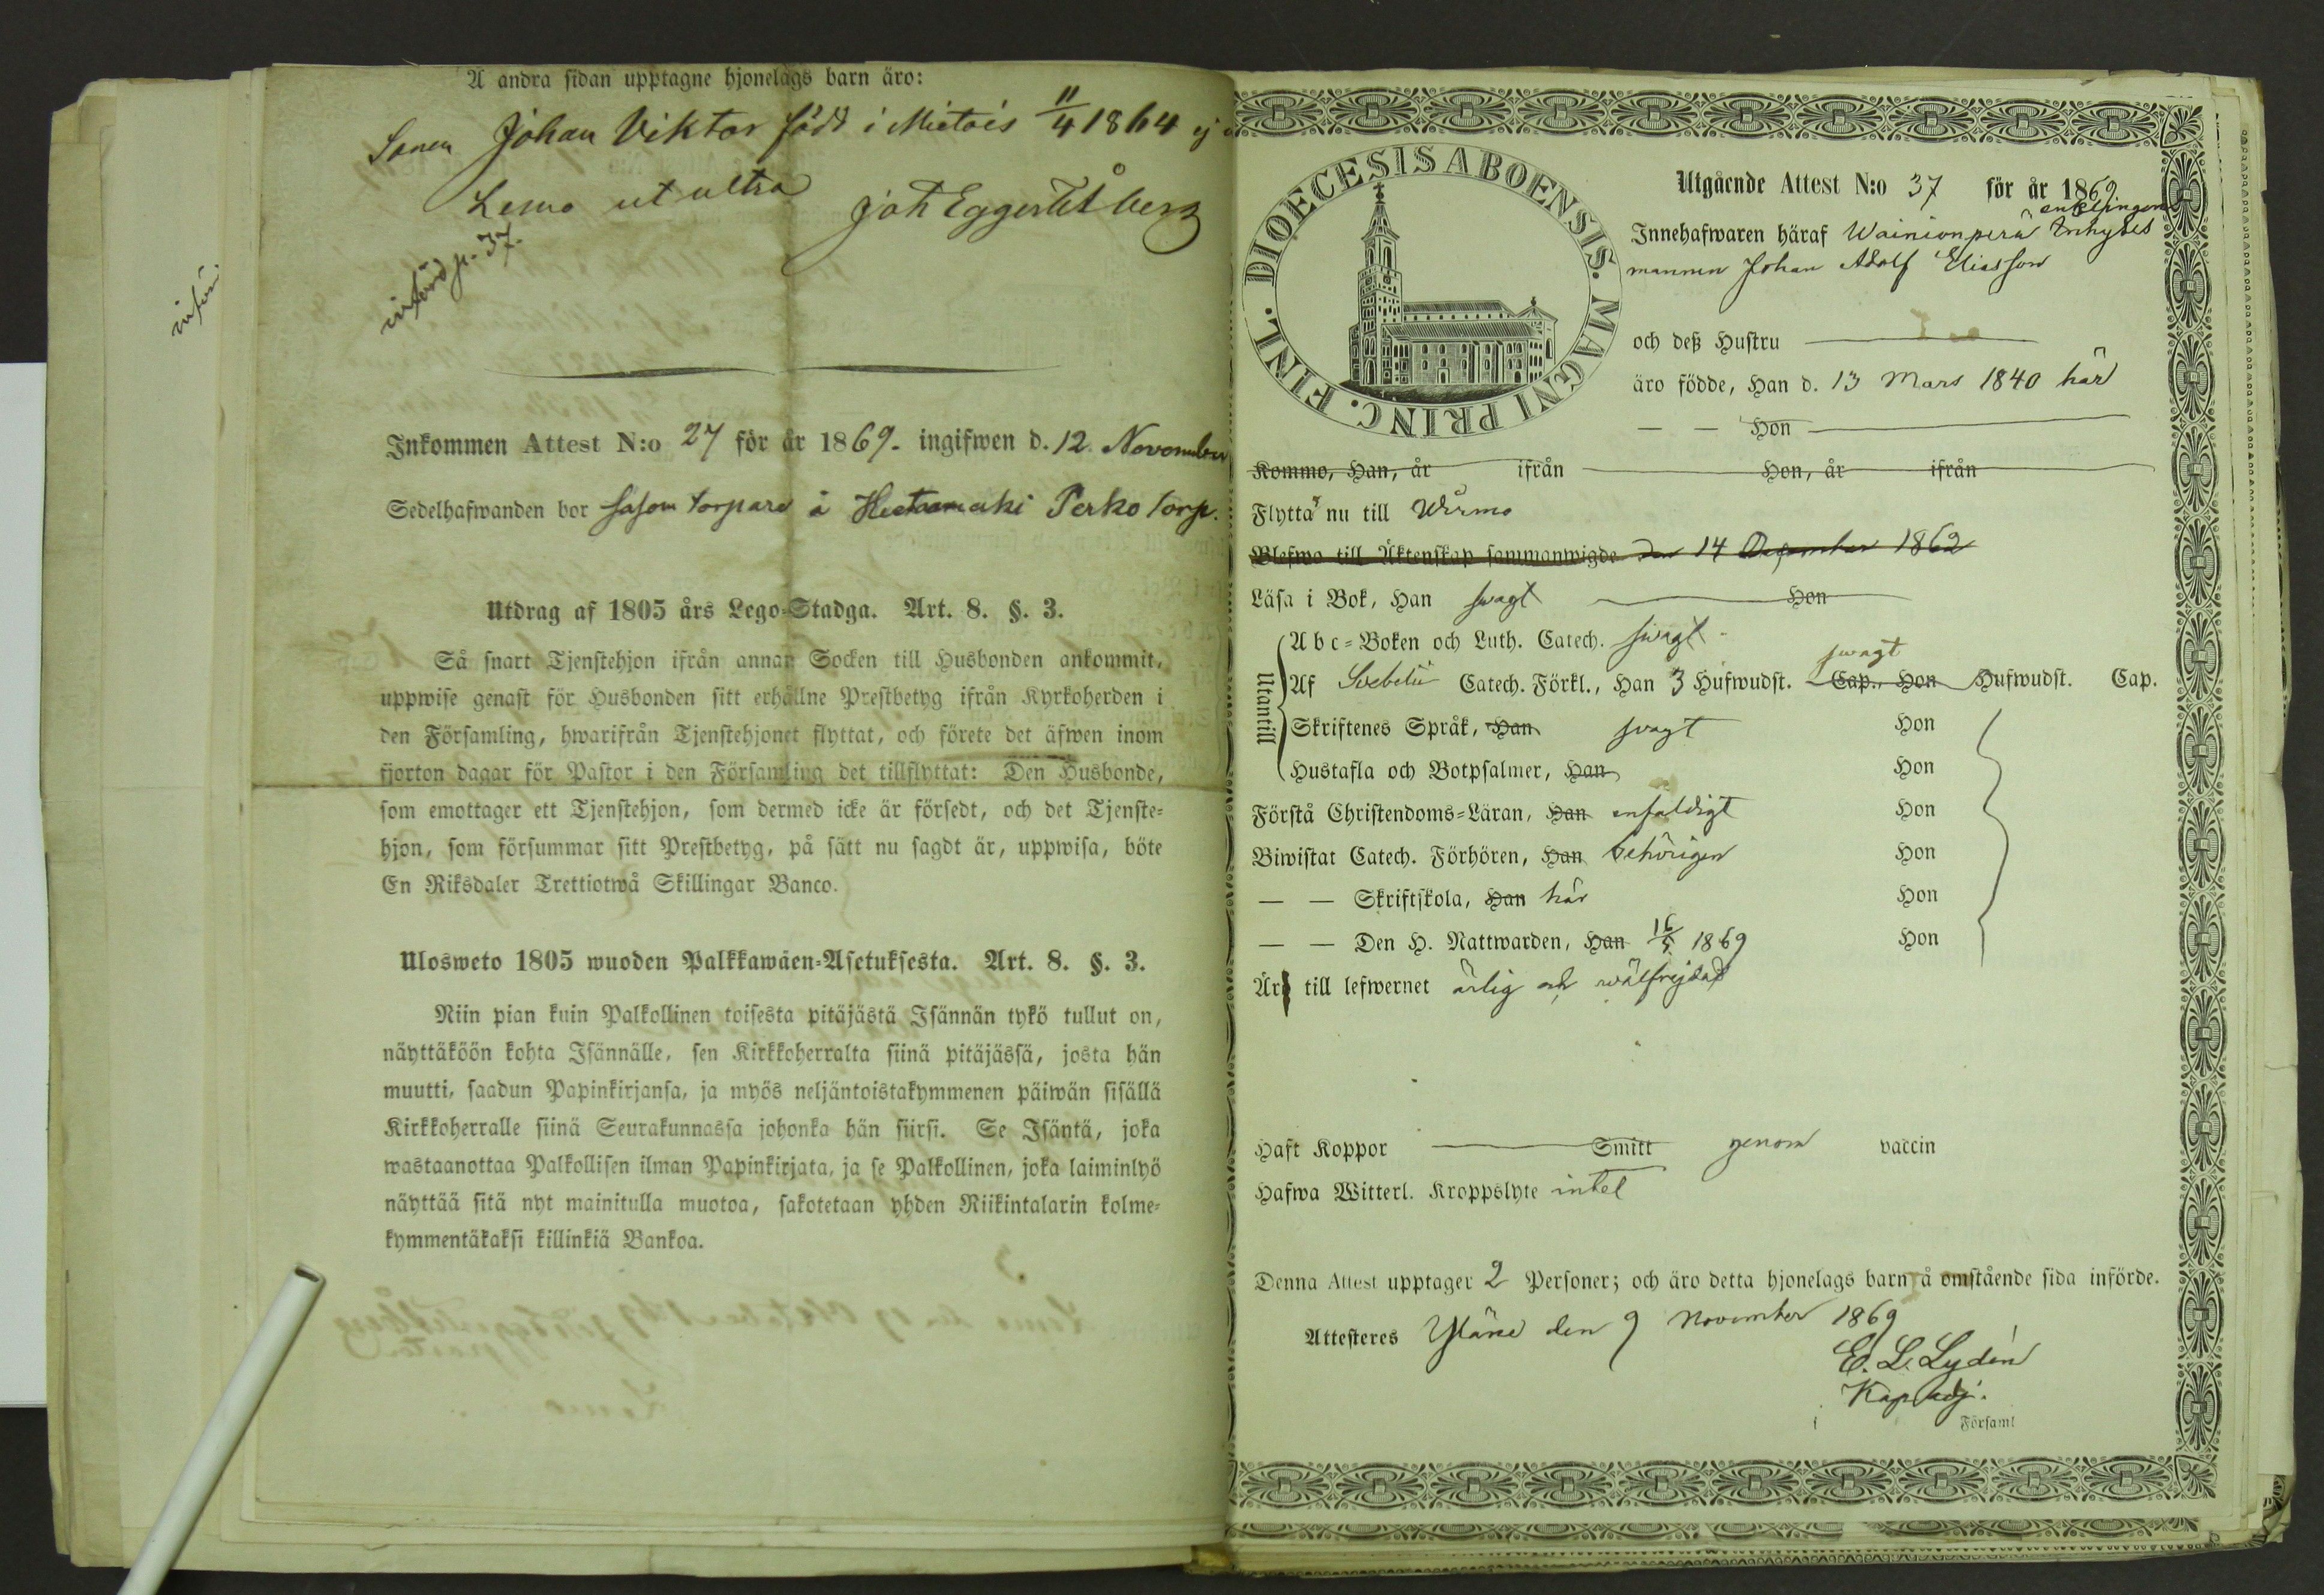 A andra sidan upptagne hjonelags barn äro:
Sonen Johan Viktor född i Mietois 11/4 1864
Lemo ut ultra Joh Eggert Råberg
införd p. 37.
införd
Inkommen Attest N:o 27 för år 1869. ingifwen d. 12. November
Sedelhafwanden bor såsom torpare å Perko torp.
Utdrag af 1805 års Lego-Stadga. Art. 8. §. 3.
Så snart Tjenstehjon ifrån annan Socken till Husbonden ankommit,
uppwise genast för Husbonden sitt erhållne Prestbetyg ifrån Kyrkoherden i
den Församling, hwarifrån Tjenstehjonet flyttat, och förete det äfwen inom
fjorton dagar för Pastor i den Församling det tillflyttat: Den Husbonde,
som emottager ett Tjenstehjon, som dermed icke är försedt, och det Tjenste-
hjon, som försummar sitt Prestbetyg, på sätt nu sagdt är, uppwisa, böte
En Riksdaler Trettiotwå Skillingar Banco.
Ulosweto 1805 wuoden Palkkawäen-Asetuksesta. Art. 8. §. 3.
Niin pian kuin Palkollinen toisesta pitäjästä Isännän tykö tullut on,
näyttäköön kohta Isännälle, sen Kirkkoherralta siinä pitäjässä, josta hän
muutti, saadun Papinkirjansa, ja myös neljäntoistakymmenen päiwän sisällä
Kirkkoherralle siinä Seurakunnassa johonka hän siirsi. Se Isäntä, joka
wastaanottaa Palkollisen ilman Papinkirjata, ja se Palkollinen, joka laiminlyö
näyttää sitä nyt mainitulla muotoa, sakotetaan yhden Riikintalarin kolme-
kymmentäkaksi killinkiä Bankoa.
FINL. DIOECESIS ABOENSIS. MAGNI PRINC.
Utgående Attest N:o 37 för år 1869
enklingen
Innehafwaren häraf Wainionperä Inhyses
mannen Johan Adolf Eliasson
och deß Hustru
äro födde, Han d. 13 Mars 1840 här
— — Hon
Kommo, Han, år ifrån Hon, år ifrån
Flytta nu till Wirmo
Blefwo till Äktenskap sammanwigde den 14 December 1862
Läsa i Bok, Han swagt Hon
Utantill
Abc-Boken och Luth. Catech. swagt
swagt
Af Svebelii Catech. Förkl., Han 3 Hufwudst. Cap., Hon Hufwudst. Cap.
Skriftenes Språk, Han swagt Hon
Hustafla och Botpsalmer, Han Hon
Förstå Christendoms-Läran, Han enfaldigt Hon
Biwistat Catech. Förhören, Han behörigen Hon
— — Skriftskola, Han här Hon
— — Den H. Nattwarden, Han 16/5 1869 Hon
Är till lefwernet ärlig och wälfrejdad
Haft Koppor Smitt genom vaccin
Hafwa Witterl. Kroppslyte intet
Denna Attest upptager 2 Personer; och äro detta hjonelags barn å omstående sida införde.
Attesteres Yläne den 9 November 1869
E. L. Lydén
Kap adj.
i Församl